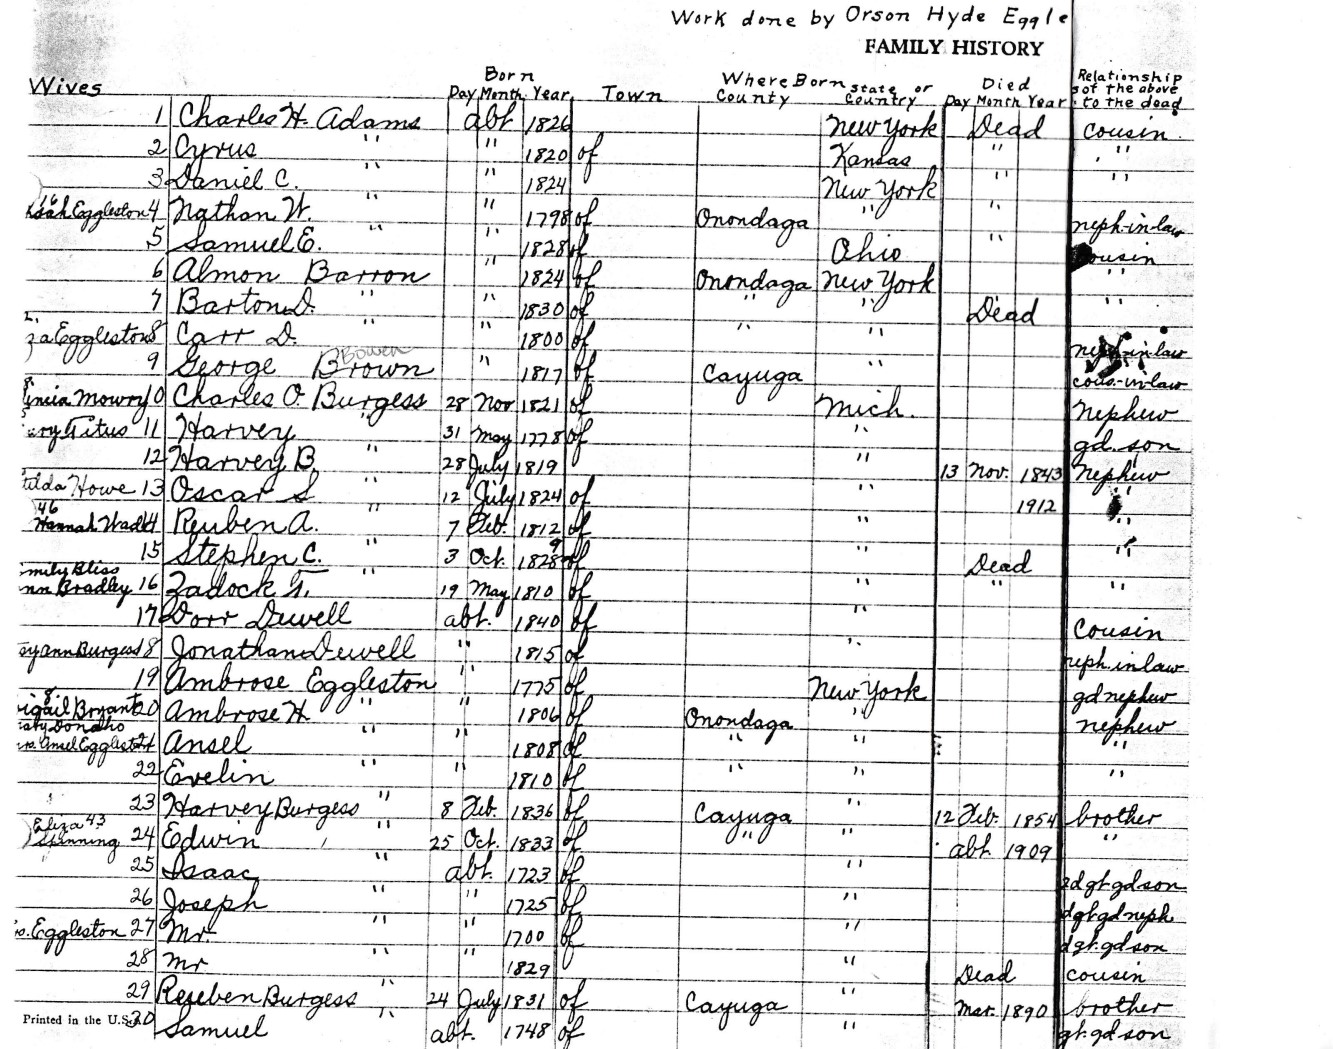 Work done by Orson Hyde Eggle
FAMILY HISTORY
Wives Born Day Month Year Town Where Born County State or Country Died Day Month Year Relationship of the above to the dead
1 Charles H. Adams abt 1826 New York Dead cousin
2 Cyrus " " 1820 of Kansas " "
3 Daniel C. " " 1824 New York " "
16 Eggleston 4 Nathan W. " " 1798 of Onondaga " " neph-in-law
5 Samuel E. " " 1828 of Ohio " cousin
6 Almon Barron " 1824 of Onondaga New York "
7 Barton D. " " 1830 of " " Dead "
za Eggleston 8 Carr D. " " 1800 of " " neph-in-law
9 George Brown Bowen " 1817 of Cayuga " cous-in-law
Mowry 10 Charles O. Burgess 28 Nov 1821 of Mich. Nephew
ary Titus 11 Harvey " 31 May 1778 of " gd. son
12 Harvey B. " 28 July 1819 " 13 Nov. 1843 Nephew
tilda Howe 13 Oscar S " 12 July 1824 of " 1912 "
46 Hannah Wad 14 Reuben A. " 7 Feb. 1812 of " "
15 Stephen C. " 3 Oct. 1828 9 of " Dead "
mily Bliss
nn Bradley 16 Zadock F. " 19 May 1810 of " " "
17 Dorr Dewell abt. 1840 of " cousin
ary ann Burgess 18 Jonathan Dewell " 1815 of " neph. in law
19 Ambrose Eggleston " 1775 of New York gd nephew
8 igail Bryant 20 Ambrose H. " " 1806 of Onondaga " nephew
Donalho
rs. Ansel Eggleston 21 Ansel " " 1808 of " " "
22 Evelin " " 1810 of " " "
23 Harvey Burgess " 8 Feb. 1836 of Cayuga " 12 Feb. 1854 brother
Eliza 43
24 Edwin " 25 Oct. 1833 of " " abt 1909 "
25 Isaac " abt. 1723 of " gt. gd son
26 Joseph " " 1725 of " gt gd neph
s. Eggleston 27 Mr. " " 1700 of " gt. gd son
28 Mr " " 1829 " Dead cousin
29 Reuben Burgess " 24 July 1831 of Cayuga " Mar. 1890 brother
30 Samuel " abt. 1748 of " gt. gd son
Printed in the U.S.A.